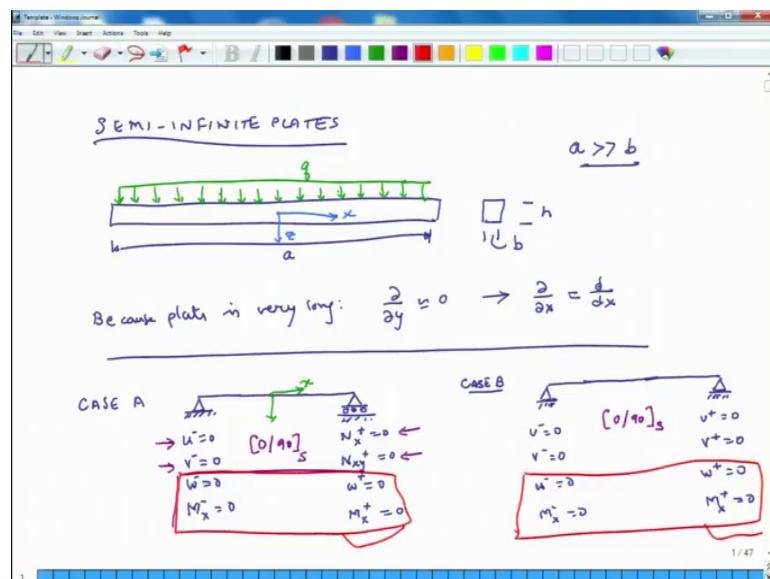 Template - Windows Journal
File Edit View Insert Actions Tools Help
SEMI-INFINITE PLATES
a >> b
q
x
z
a
h
b
Because plate is very long: ∂/∂y ≈ 0 → ∂/∂x = d/dx
CASE A
x
CASE B
→ u⁻=0 [0/90]s Nx⁺=0 ←
→ v⁻=0 Nxy⁺=0 ←
w⁻=0 w⁺=0
Mx⁻=0 Mx⁺=0
u⁻=0 [0/90]s u⁺=0
v⁻=0 v⁺=0
w⁻=0 w⁺=0
Mx⁻=0 Mx⁺=0
1 / 47
1